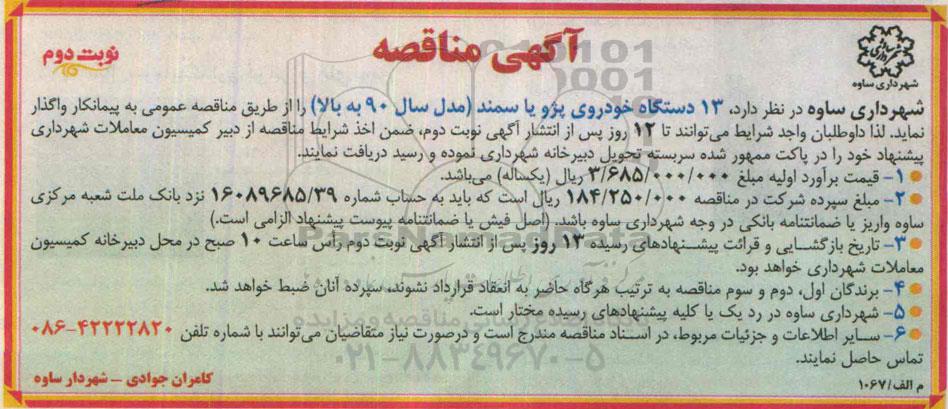 آگهی مناقصه
نوبت دوم
شهرداری ساوه
شهرداری ساوه در نظر دارد، ۱۳ دستگاه خودروی پژو یا سمند (مدل سال ۹۰ به بالا) را از طریق مناقصه عمومی به پیمانکار واگذار
نماید. لذا داوطلبان واجد شرایط می‌توانند تا ۱۲ روز پس از انتشار آگهی نوبت دوم، ضمن اخذ شرایط مناقصه از دبیر کمیسیون معاملات شهرداری
پیشنهاد خود را در پاکت ممهور شده سربسته تحویل دبیرخانه شهرداری نموده و رسید دریافت نمایند.
۱- قیمت برآورد اولیه مبلغ ۳/۶۸۵/۰۰۰/۰۰۰ ریال (یکساله) می‌باشد.
۲- مبلغ سپرده شرکت در مناقصه ۱۸۴/۲۵۰/۰۰۰ ریال است که باید به حساب شماره ۱۶۰۸۹۶۸۵/۳۹ نزد بانک ملت شعبه مرکزی
ساوه واریز یا ضمانتنامه بانکی در وجه شهرداری ساوه باشد. (اصل فیش یا ضمانتنامه پیوست پیشنهاد الزامی است.)
۳- تاریخ بازگشایی و قرائت پیشنهادهای رسیده ۱۳ روز پس از انتشار آگهی نوبت دوم رأس ساعت ۱۰ صبح در محل دبیرخانه کمیسیون
معاملات شهرداری خواهد بود.
۴- برندگان اول، دوم و سوم مناقصه به ترتیب هرگاه حاضر به انعقاد قرارداد نشوند، سپرده آنان ضبط خواهد شد.
۵- شهرداری ساوه در رد یک یا کلیه پیشنهادهای رسیده مختار است.
۶- سایر اطلاعات و جزئیات مربوط، در اسناد مناقصه مندرج است و درصورت نیاز متقاضیان می‌توانند با شماره تلفن ۴۲۲۲۲۸۲۰-۰۸۶
تماس حاصل نمایند.
۰۲۱-۸۸۳۴۹۶۷۰-۵
کامران جوادی – شهردار ساوه
م الف/۱۰۶۷